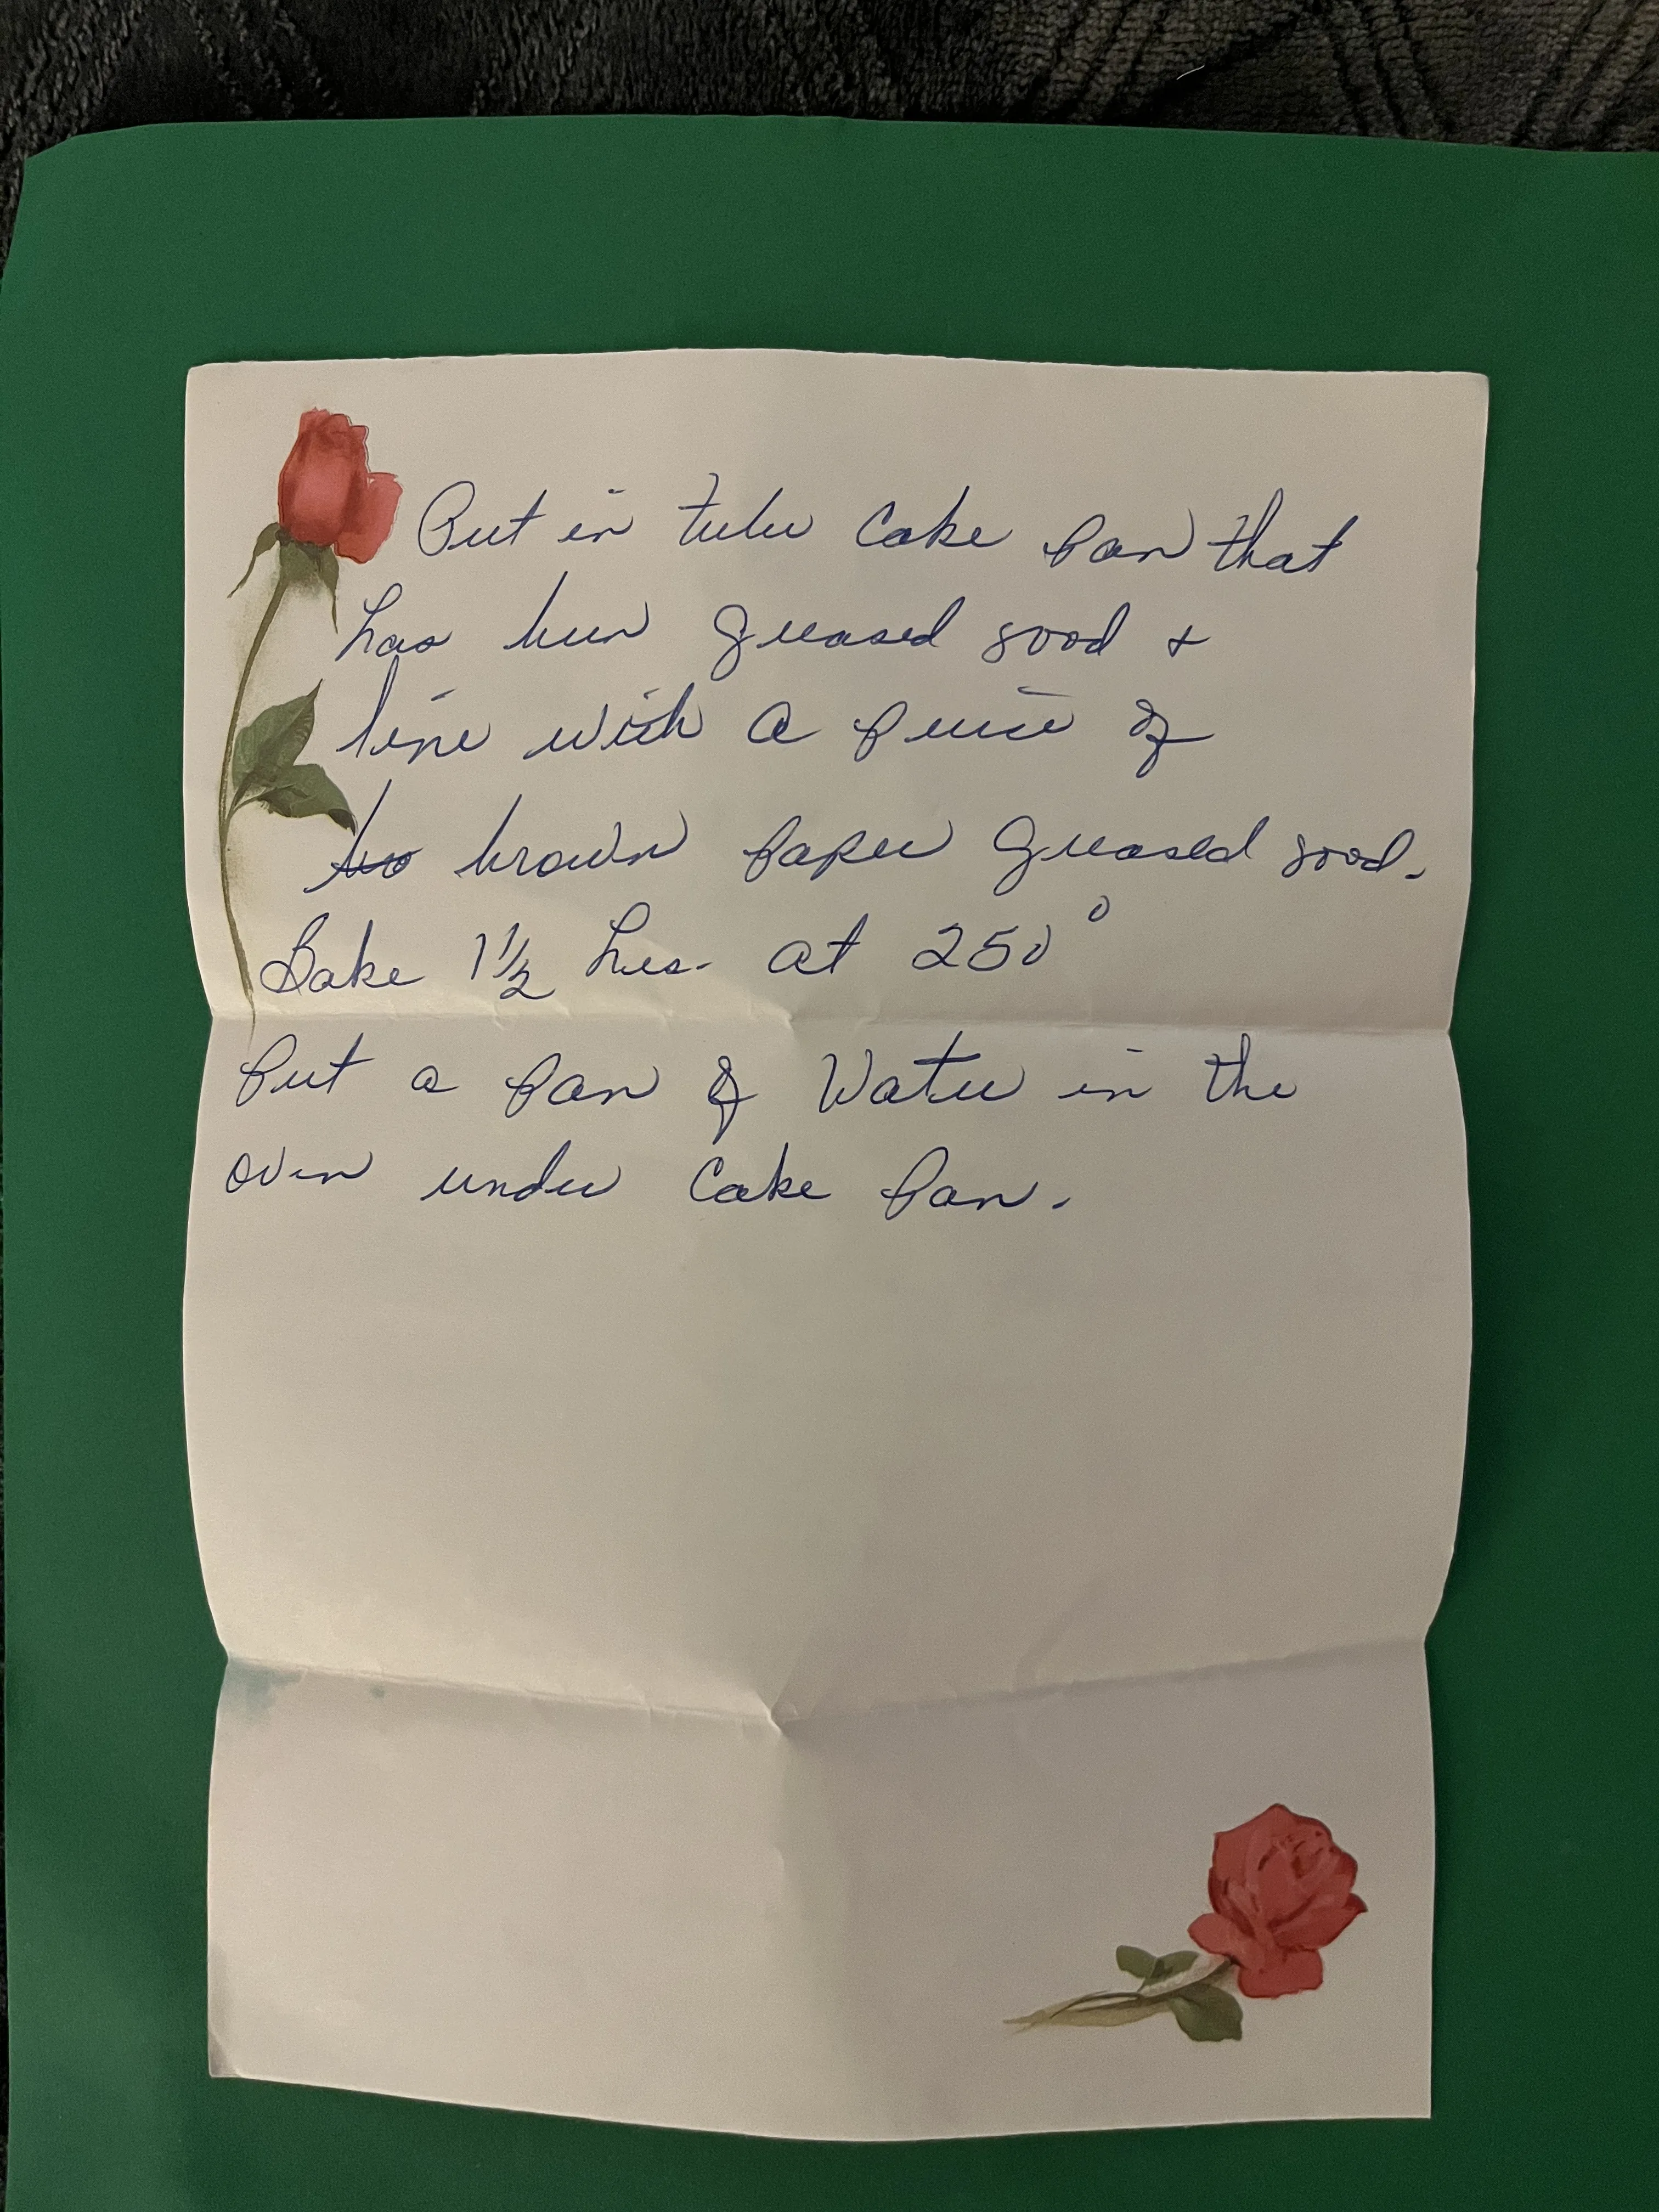 Put in tube Cake Pan that
has been greased good +
line with a peice of
bro brown paper greased good.
Bake 1 1/2 hrs. at 250°
Put a pan of Water in the
oven under Cake Pan.